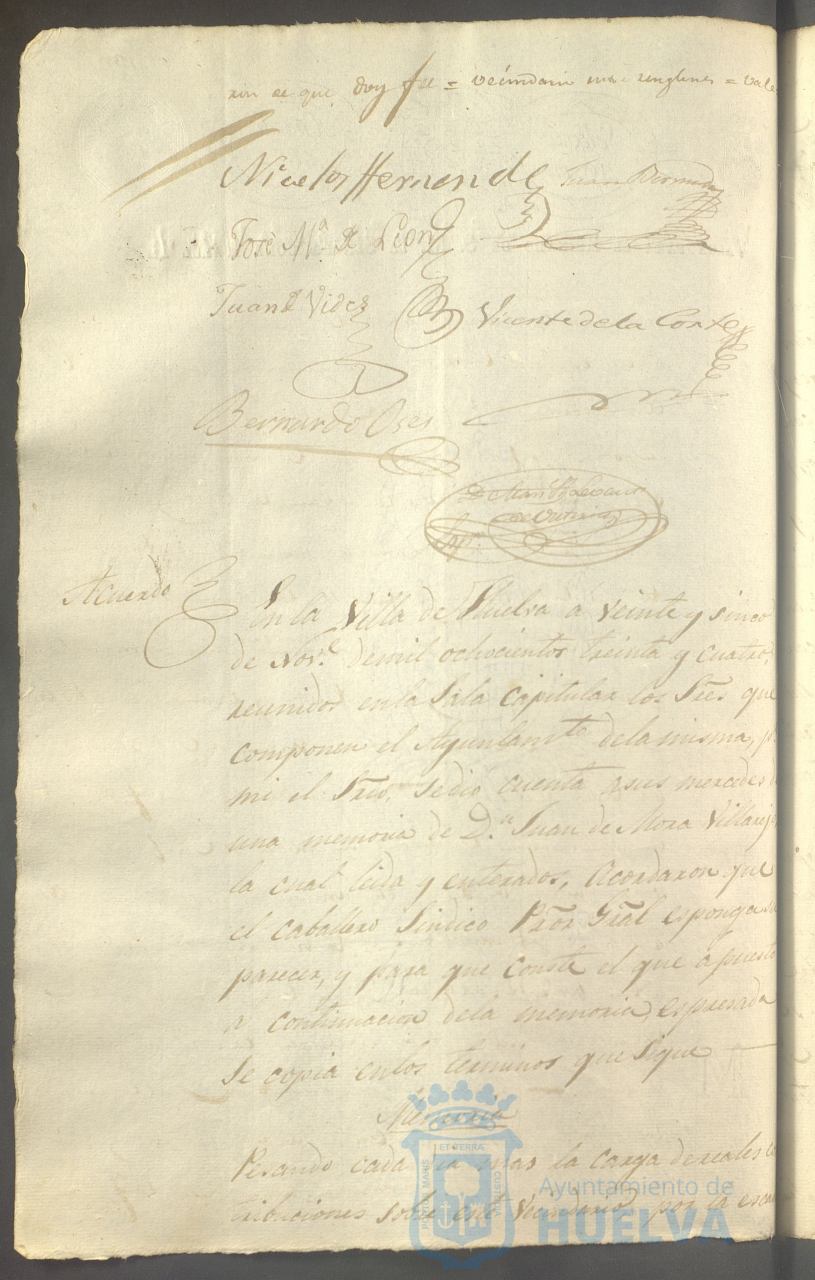 que doy fee = vecindario = vale
Nicolas Hernandez Juan Bermudez
José M.ª de Leon
Juan de Vides Vicente de la Corte
Bernardo Oses
Acuerdo
En la Villa de Huelva a veinte y sinco
de Nov.e de mil ochocientos treinta y cuatro,
reunidos en la Sala Capitular los Sres que
componen el Ayuntam.to de la misma, p.r
mi el Srio. se dió cuenta a sus mercedes de
una memoria de D.n Juan de Mora Villarejo
la cual leida y enterados, Acordaron que
el caballero Sindico Pror Gral esponga su
parecer, y para que conste el que a puesto
a continuacion de la memoria espresada
se copia en los terminos que sigue
Memoria
Pesando cada dia mas la carga de reales con
tribuciones sobre este Vecindario por la esca
PORTUS MARIS ET TERRÆ CUSTODIA
Ayuntamiento de
HUELVA